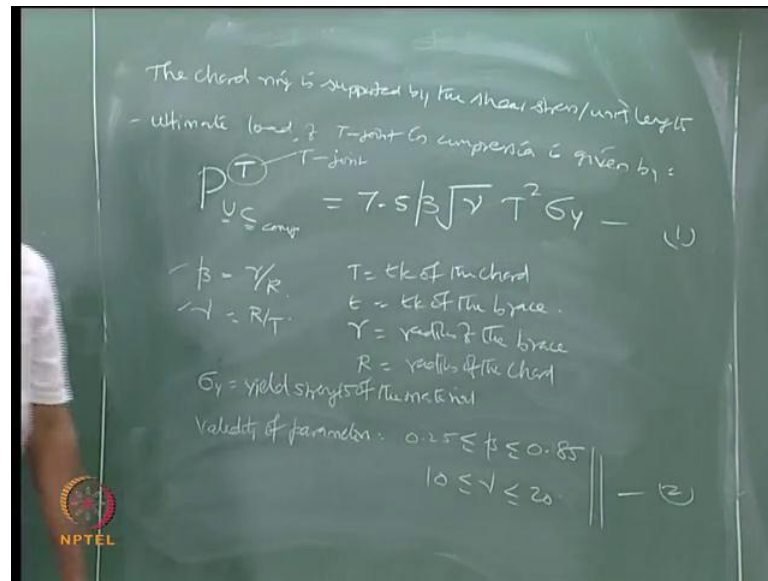 The chord ring is supported by the shear stress/unit length
- Ultimate load of T-joint in compression is given by:
P^T_{UC comp} = 7.5 β √γ T² σy — (1)
T-joint
β = r/R T = tk of the chord
γ = R/T t = tk of the brace.
r = radius of the brace
R = radius of the chord
σy = yield strength of the material
Validity of parameters: 0.25 ≤ β ≤ 0.85
10 ≤ γ ≤ 20. — (2)
NPTEL